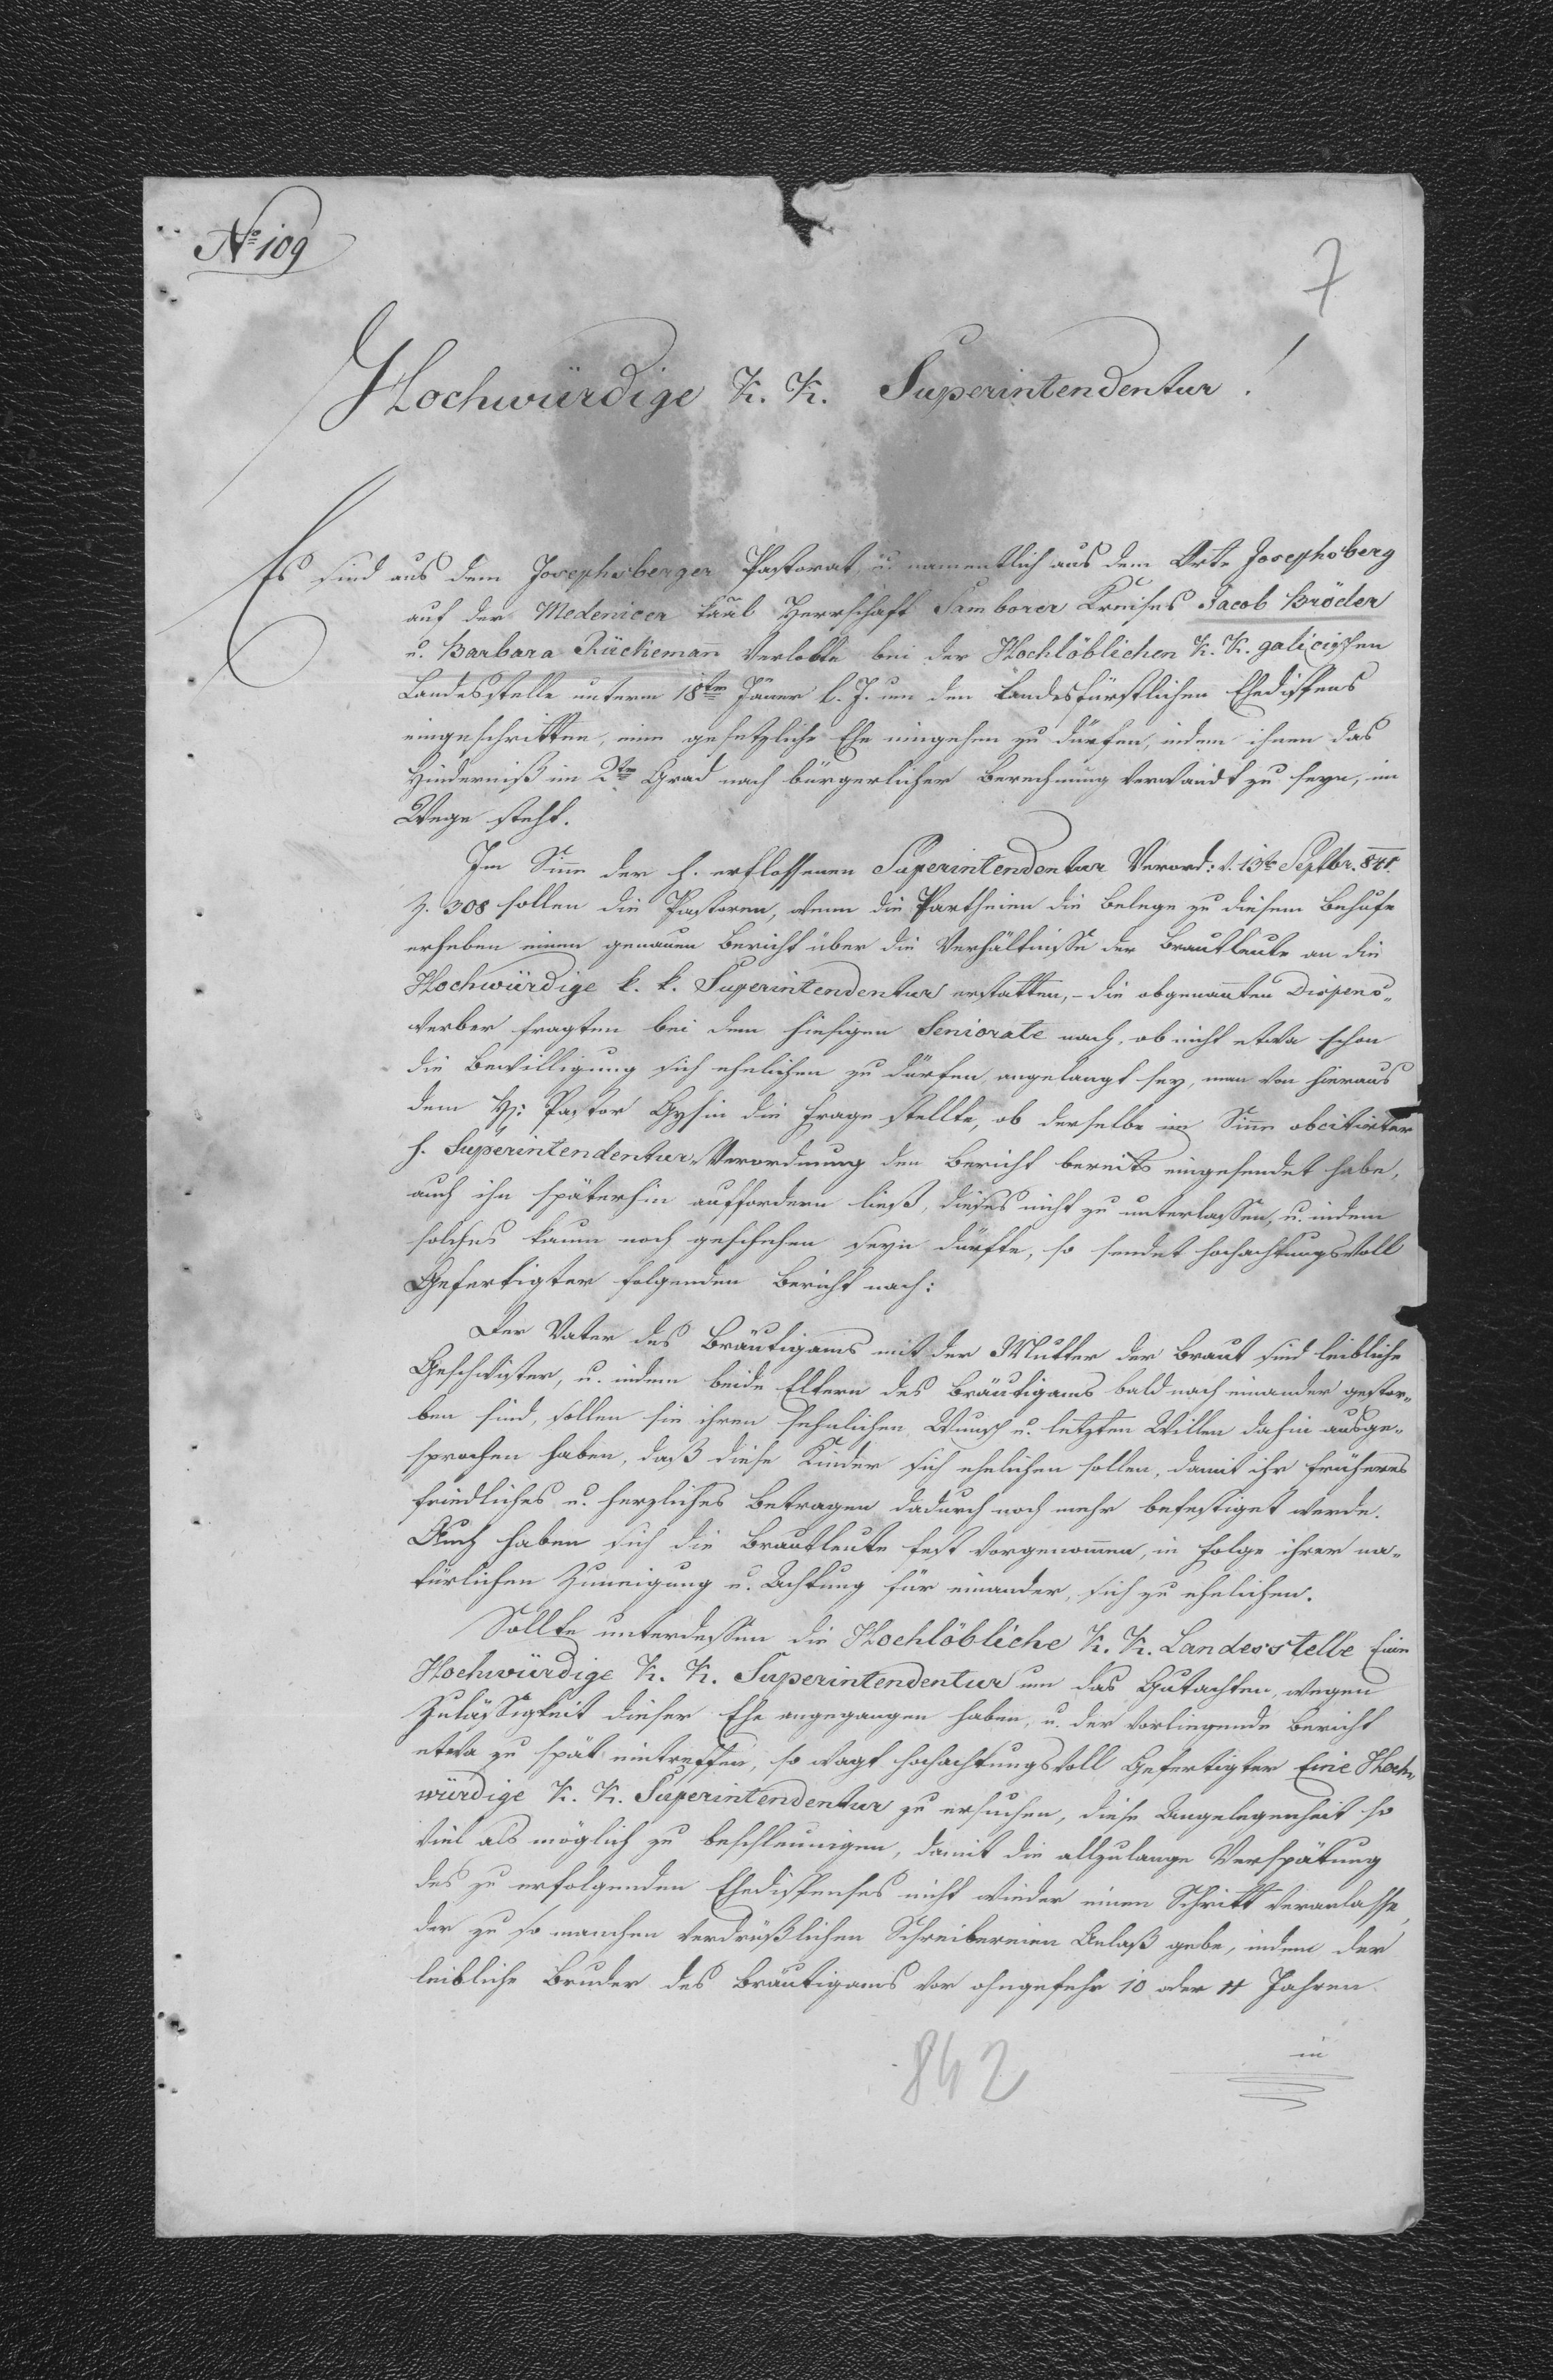 No 109
7
Hochwürdige K. K. Superintendentur!
Es sind aus dem Josephsberger Pastorat, u. namentlich aus dem Orte Josephsberg
auf der Medenicer Herrschaft Samborer Kreises Jacob Bröder
u. Barbara Rückemann Verlobte bei der Hochlöblichen K. K. galicischen
Landesstelle unterm 18ten Jäner l. J. um den Landesfürstlichen Ehedispens
eingeschritten, eine gesetzliche Ehe eingehen zu dürfen, indem ihnen das
Hinderniß im 2ten Grad nach bürgerlicher Berechnung verwandt zu seyn, im
Wege steht.
Im Sinne der h. erflossenen Superintendentur Verord: v. 13ten Septbr. 841.
Z. 308 sollen die Pastoren, wenn die Partheien die Belege zu diesem Behufe
erheben einen genauen Bericht über die Verhältnisse der Brautleute an die
Hochwürdige k. k. Superintendentur erstatten, – die obgenannten Dispens-
werber fragten bei dem hiesigen Seniorate nach, ob nicht etwa schon
die Bewilligung sich ehelichen zu dürfen angelangt sey, man von hieraus
dem H: Pastor Gysin die Frage stellte, ob derselbe im Sinne obcitirter
h. Superintendentur-Verordnung den Bericht bereits eingesendet habe,
auch ihn späterhin auffordern ließ, dieses nicht zu unterlassen, u. indem
solches kaum noch geschehen seyn dürfte, so sendet hochachtungsvoll
Gefertigter folgenden Bericht nach:
Der Vater des Bräutigams mit der Mutter der Braut sind leibliche
Geschwister, u. indem beide Eltern des Bräutigams bald nach einander gestor-
ben sind, sollen sie ihren sehnlichen Wunsch u. letzten Willen dahin ausge-
sprochen haben, daß diese Kinder sich ehelichen sollen, damit ihr früheres
friedliches u. herzliches Betragen dadurch noch mehr befestiget werde.
Auch haben sich die Brautleute fest vorgenommen, in Folge ihrer na-
türlichen Zuneigung u. Achtung für einander, sich zu ehelichen.
Sollte unterdessen die Hochlöbliche K. K. Landesstelle Eine
Hochwürdige K. K. Superintendentur um das Gutachten, wegen
Zulässigkeit dieser Ehe angegangen haben, u. der vorliegende Bericht
etwa zu spät eintreffen, so wagt hochachtungsvoll Gefertigter Eine Hoch-
würdige K. K. Superintendentur zu ersuchen, diese Angelegenheit so
viel als möglich zu beschleunigen, damit die allzulange Verspätung
des zu erfolgenden Ehedispenses nicht wieder einen Schritt veranlasse,
der zu so manchen verdrüßlichen Schreibereien Anlaß gebe, indem der
leibliche Bruder des Bräutigams vor ohngefehr 10 oder 11 Jahren
in
842